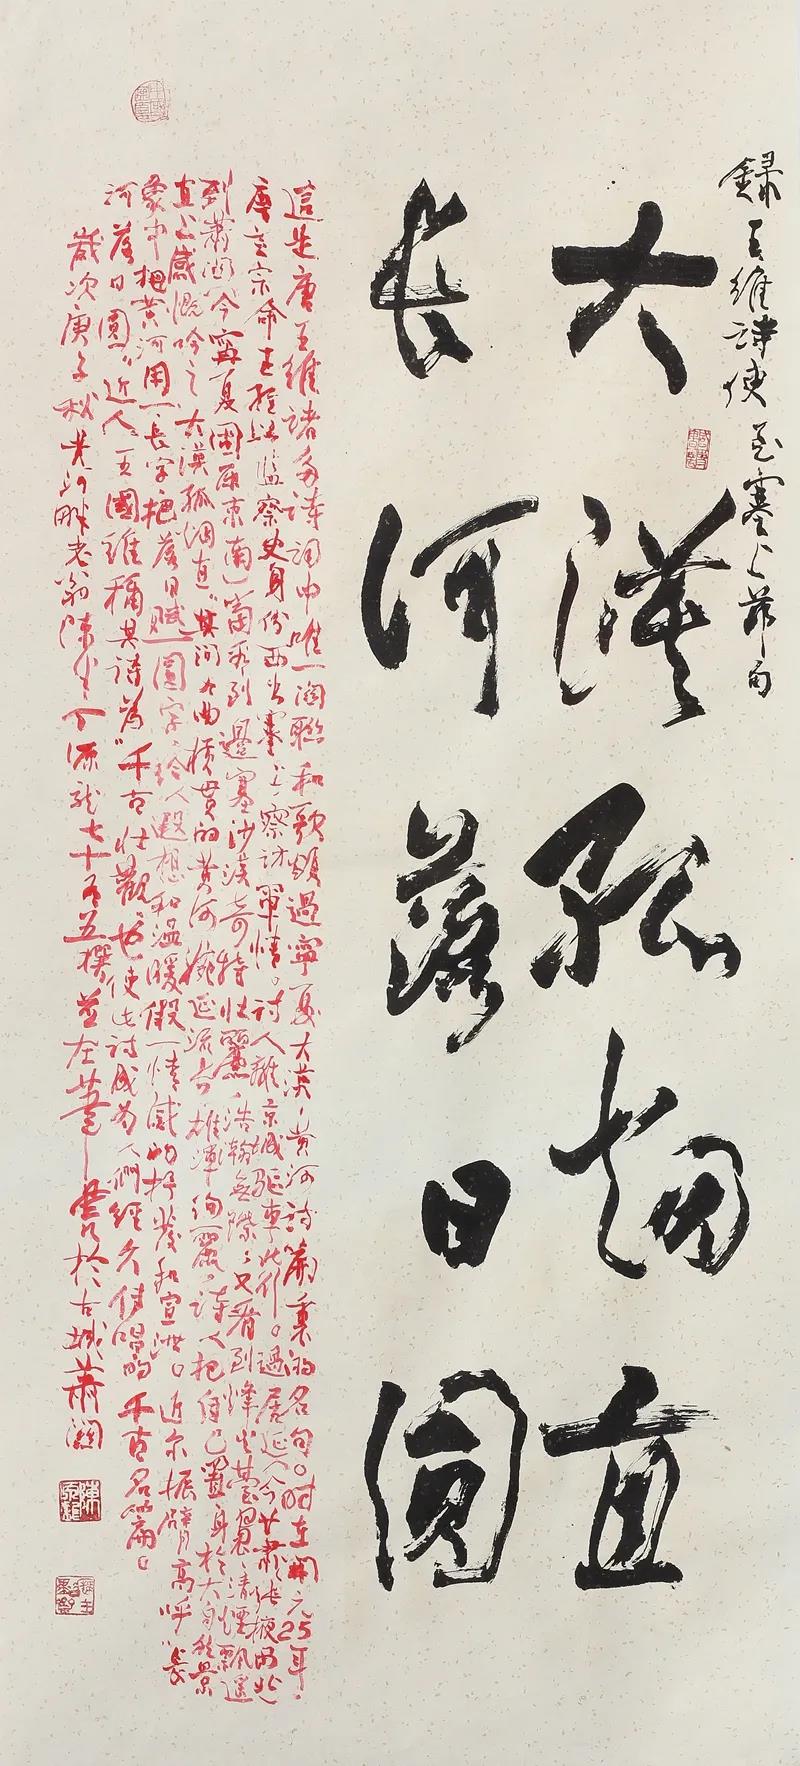 録王維詩使至塞上節句
大漠孤烟直
長河落日圓
這是唐王維諸多詩詞中唯一闕聯和歌頌過寧夏大漠、黄河詩篇裏的名句。時在開元25年，
唐玄宗命王維以監察史身份西出塞上察訪軍情。詩人離京城驅車北行。過居延(今甘肅張掖西北
到蕭關(今寧夏固原東南)當看到邊塞沙漠奇特壯麗、浩瀚無際；又看到烽火臺翼清煙飄遥
直上感慨吟之大漠孤烟直"其間九曲横貫的黄河蜿延流奔雄渾绚麗，詩人把自己置身於大自然景
象中把黄河用一長字把落日賦一圓字給人遐想和温暖假一情感的抒發和宣泄。近尔振臂高呼"長
河落日圓"近人王國維稱其詩為"千古壯觀"也使此詩成為人們經久传唱的千古名篇。
歲次庚子秋黄河畔老翁陳 源龍七十有五撰并左筆 於古城蕭關